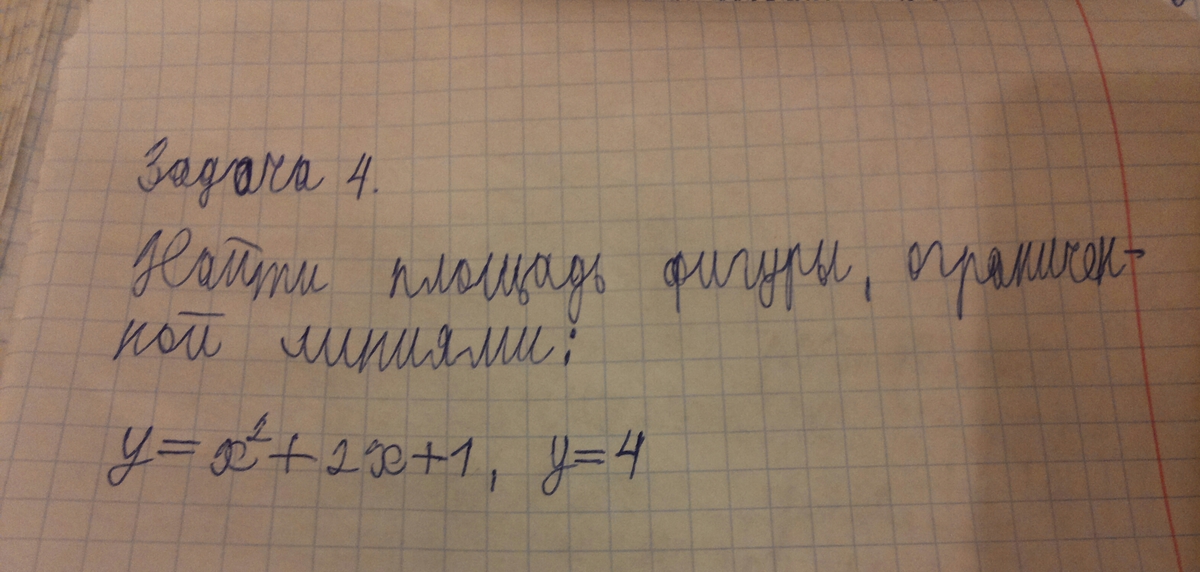 Задача 4.
Найти площадь фигуры, ограничен-
ной линиями:
y=x²+2x+1, y=4